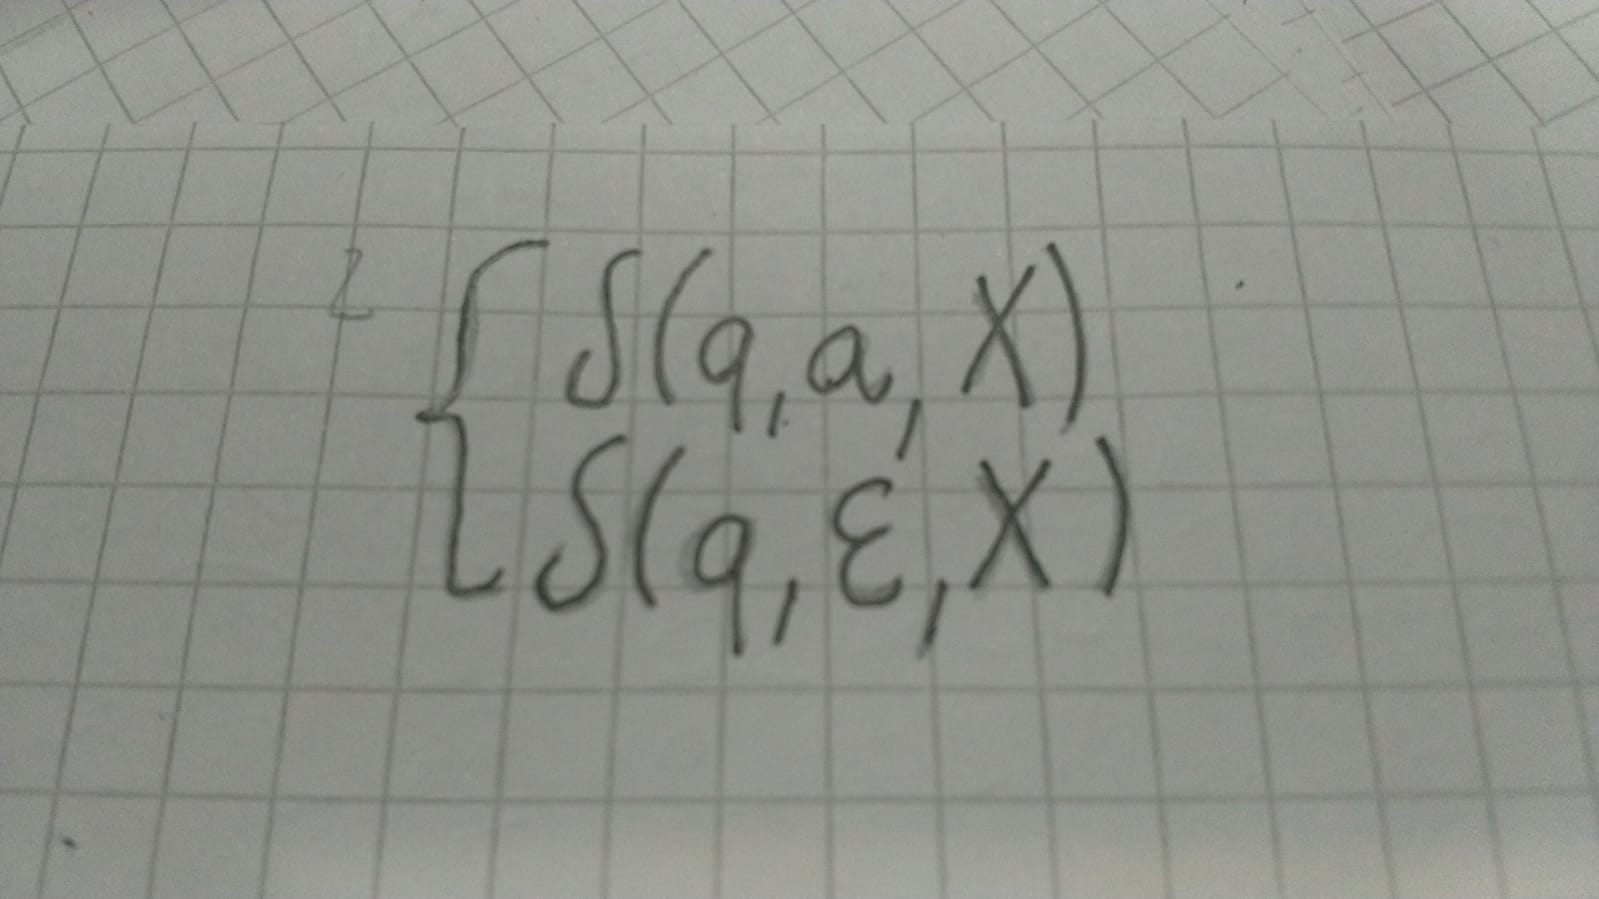 δ(q, a, X)
δ(q, ε, X)